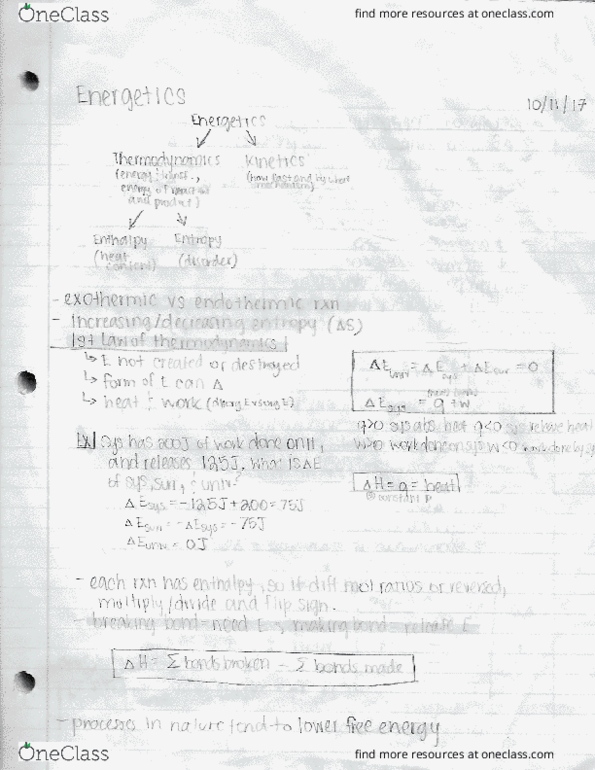 OneClass
find more resources at oneclass.com
Energetics
10/11/17
Energetics
Thermodynamics
Kinetics
(energy
(how fast and by
energy of
mechanism)
and product)
Enthalpy
Entropy
(heat
(disorder)
content)
- exothermic vs endothermic rxn
- increasing/decreasing entropy (ΔS)
1st Law of thermodynamics
↳ E not created or destroyed
↳ form of E can Δ
↳ heat : work
ΔE univ = ΔE sys + ΔE sur = 0
ΔE sys = q + w
q>0 sys abs. heat q<0 sys release heat
w>0 work done on sys w<0 work done by sys
Ex) sys has 200J of work done on it,
and releases 125J, what is ΔE
of sys, surr, : univ?
ΔE sys = -125J + 200 = 75J
ΔE surr = -ΔE sys = -75J
ΔE univ = 0J
ΔH = q = heat
@ constant P
- each rxn has enthalpy, so if diff mol ratios or reversed,
multiply/divide and flip sign.
- breaking bond = need E, making bond = release E
ΔH = Σ bonds broken - Σ bonds made
- processes in nature tend to lower free energy
OneClass
find more resources at oneclass.com